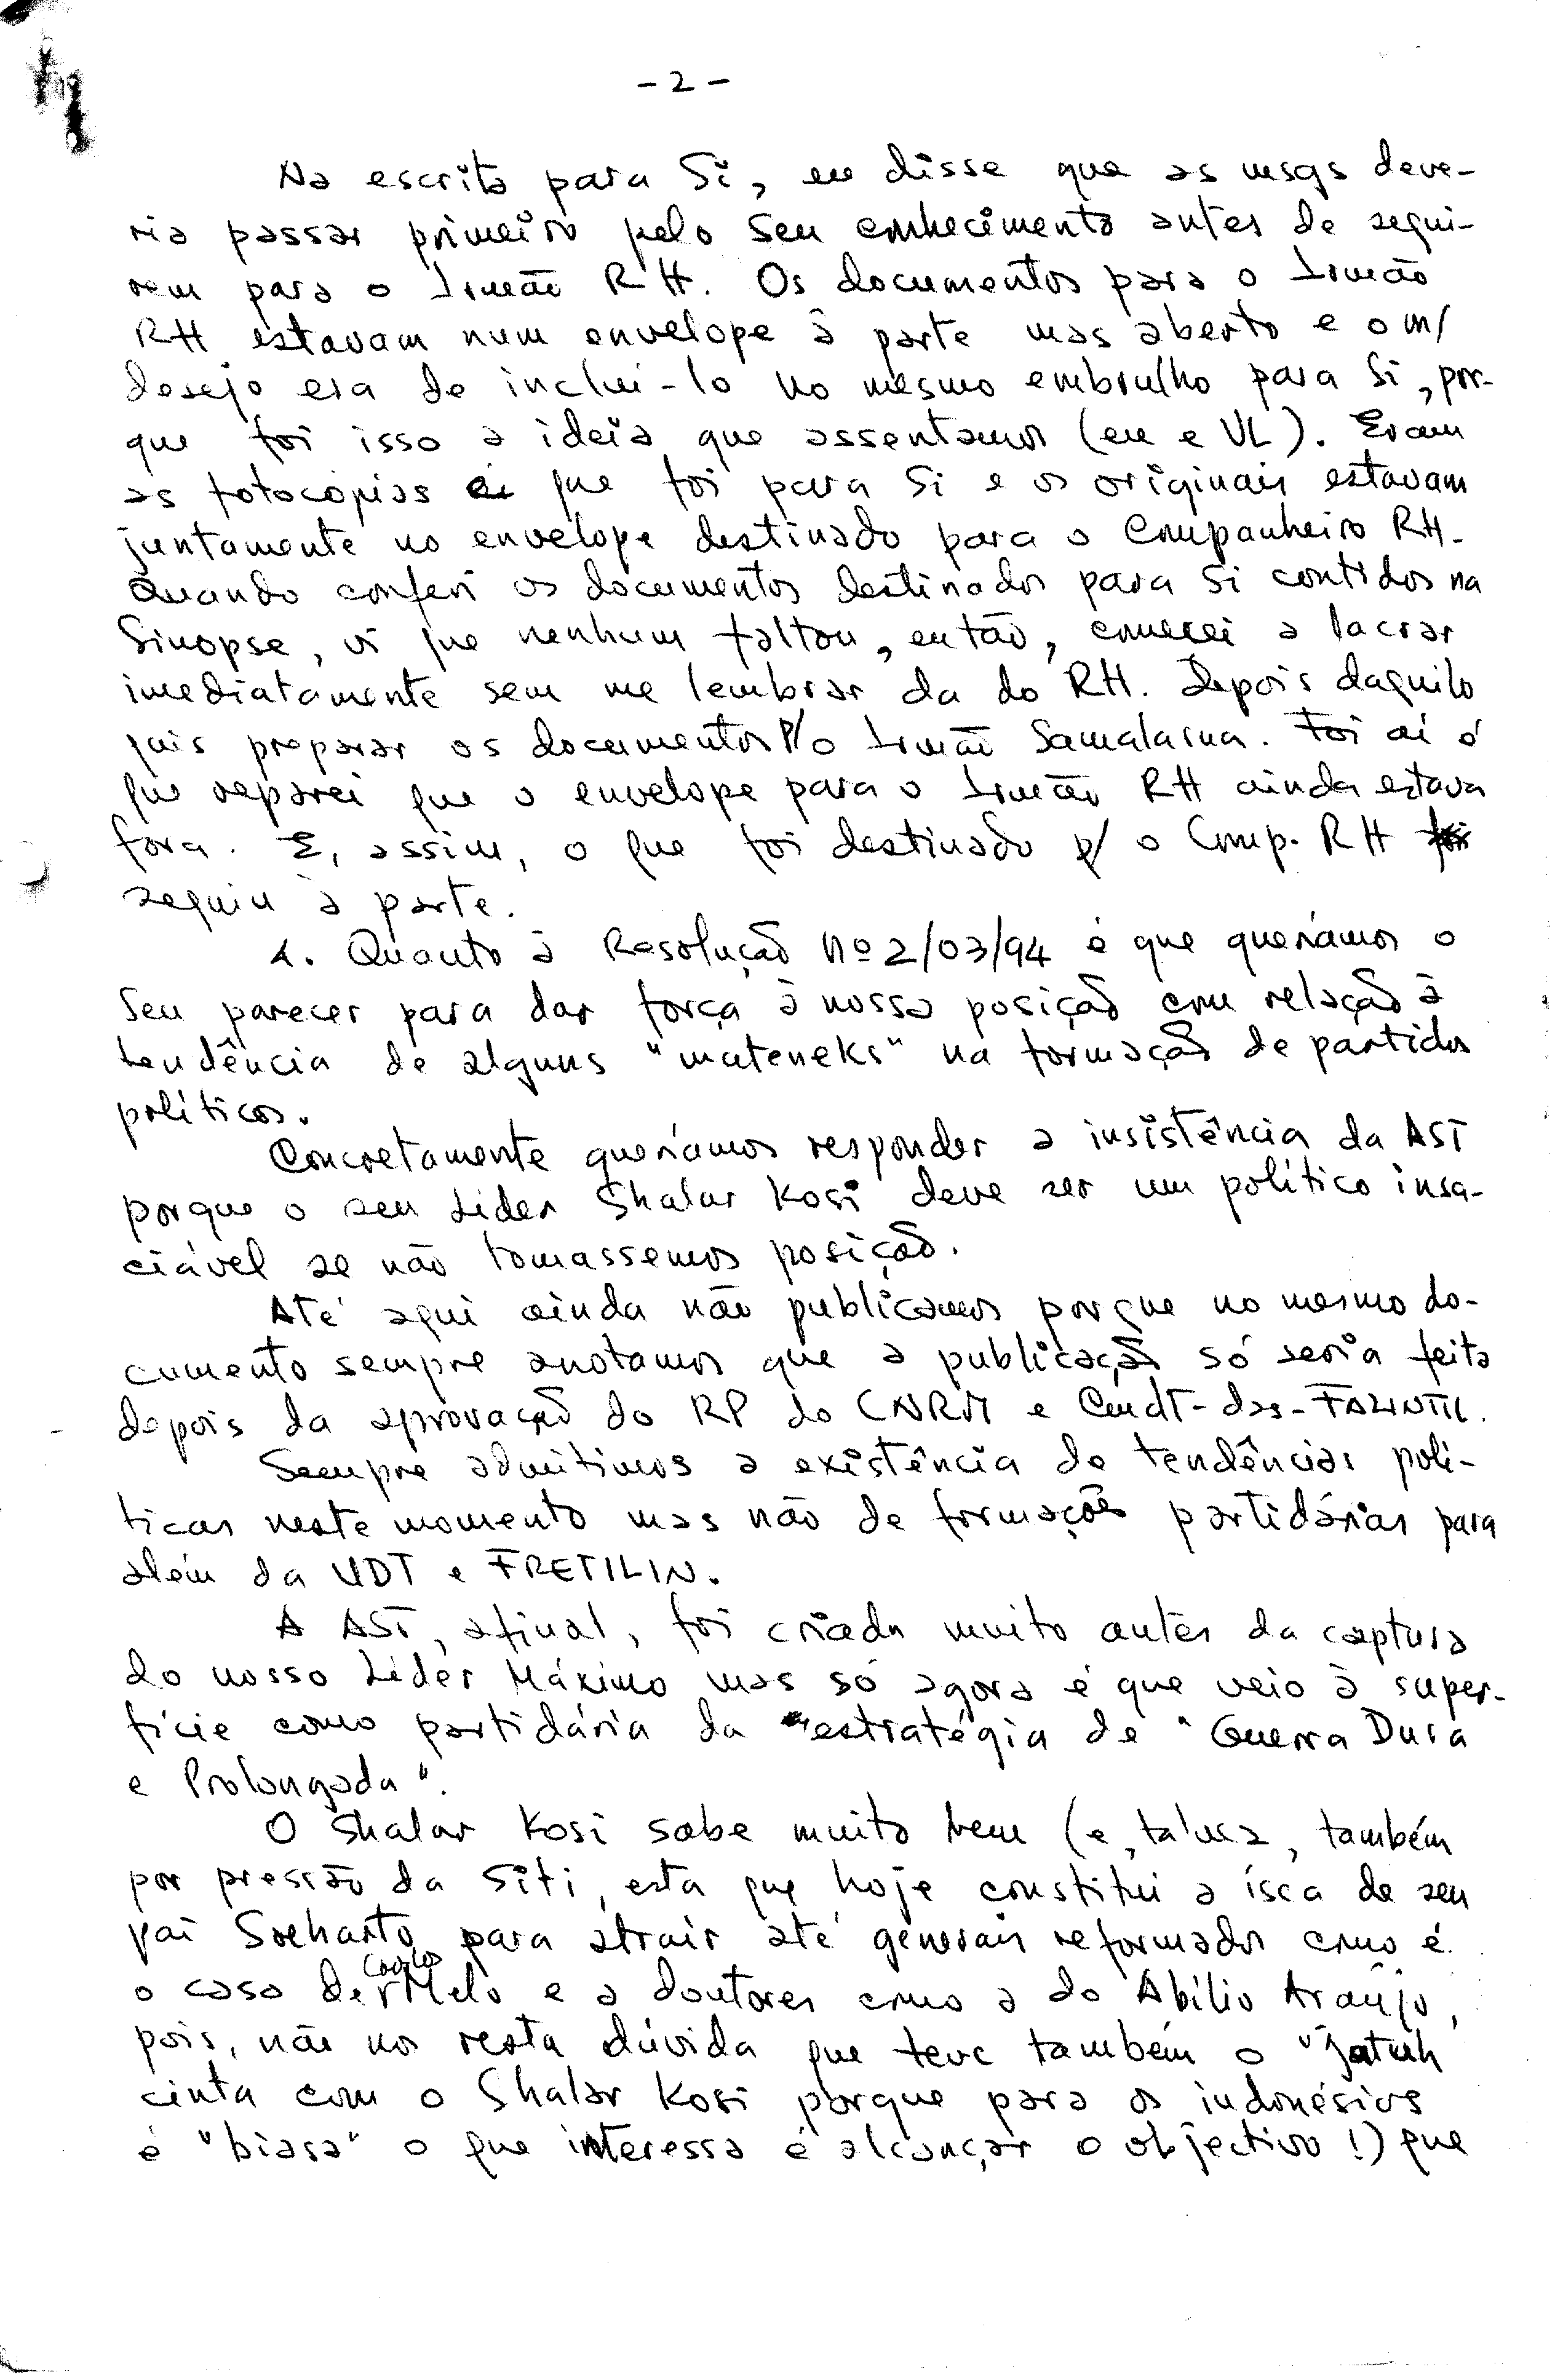 - 2 -
Na escrita para Si, eu disse que as msgs deve-
ria passar primeiro pelo seu conhecimento antes de segui-
rem para o Irmão RH. Os documentos para o Irmão
RH estavam num envelope à parte mas aberto e o m/
desejo era de inclui-lo no mesmo embrulho para Si, por-
que foi isso a ideia que assentamos (eu e VL). Eram
as fotocópias que foi para Si e os originais estavam
juntamente no envelope destinado para o Companheiro RH.
Quando conferi os documentos destinados para Si contidos na
Sinopse, vi que nenhum faltou, então, comecei a lacrar
imediatamente sem me lembrar da do RH. Depois daquilo
quis preparar os documentos p/o Irmão Samalarua. Foi aí é
que reparei que o envelope para o Irmão RH ainda estava
fora. E, assim, o que foi destinado p/ o Comp. RH
seguiu à parte.
4. Quanto à Resolução nº 2/03/94 é que queríamos o
seu parecer para dar força à nossa posição com relação à
tendência de alguns "mateneks" na formação de partidos
políticos.
Concretamente queríamos responder a insistência da AST
porque o seu Líder Shalar Kosi deve ser um político insa-
ciável se não tomassemos posição.
Até aqui ainda não publicamos porque no mesmo do-
cumento sempre anotamos que a publicação só seria feita
depois da aprovação do RP do CNRM e Cmdt-das-FALINTIL.
Sempre admitimos a existência de tendências polí-
ticas neste momento mas não de formações partidárias para
além da UDT e FRETILIN.
A AST, afinal, foi criada muito antes da captura
do nosso Líder Máximo mas só agora é que veio à super-
fície como partidária da estratégia de "Guerra Dura
e Prolongada".
O Shalar Kosi sabe muito bem (e, talvez, também
por pressão da Siti, esta que hoje constitui a isca de seu
pai Soeharto para atrair até generais reformados como é
o caso de Carlos Melo e a doutores como a do Abílio Araújo,
pois, não nos resta dúvida que teve também o "jatuh
cinta com o Shalar Kosi porque para os indonésios
é "biasa" o que interessa é alcançar o objectivo !) que